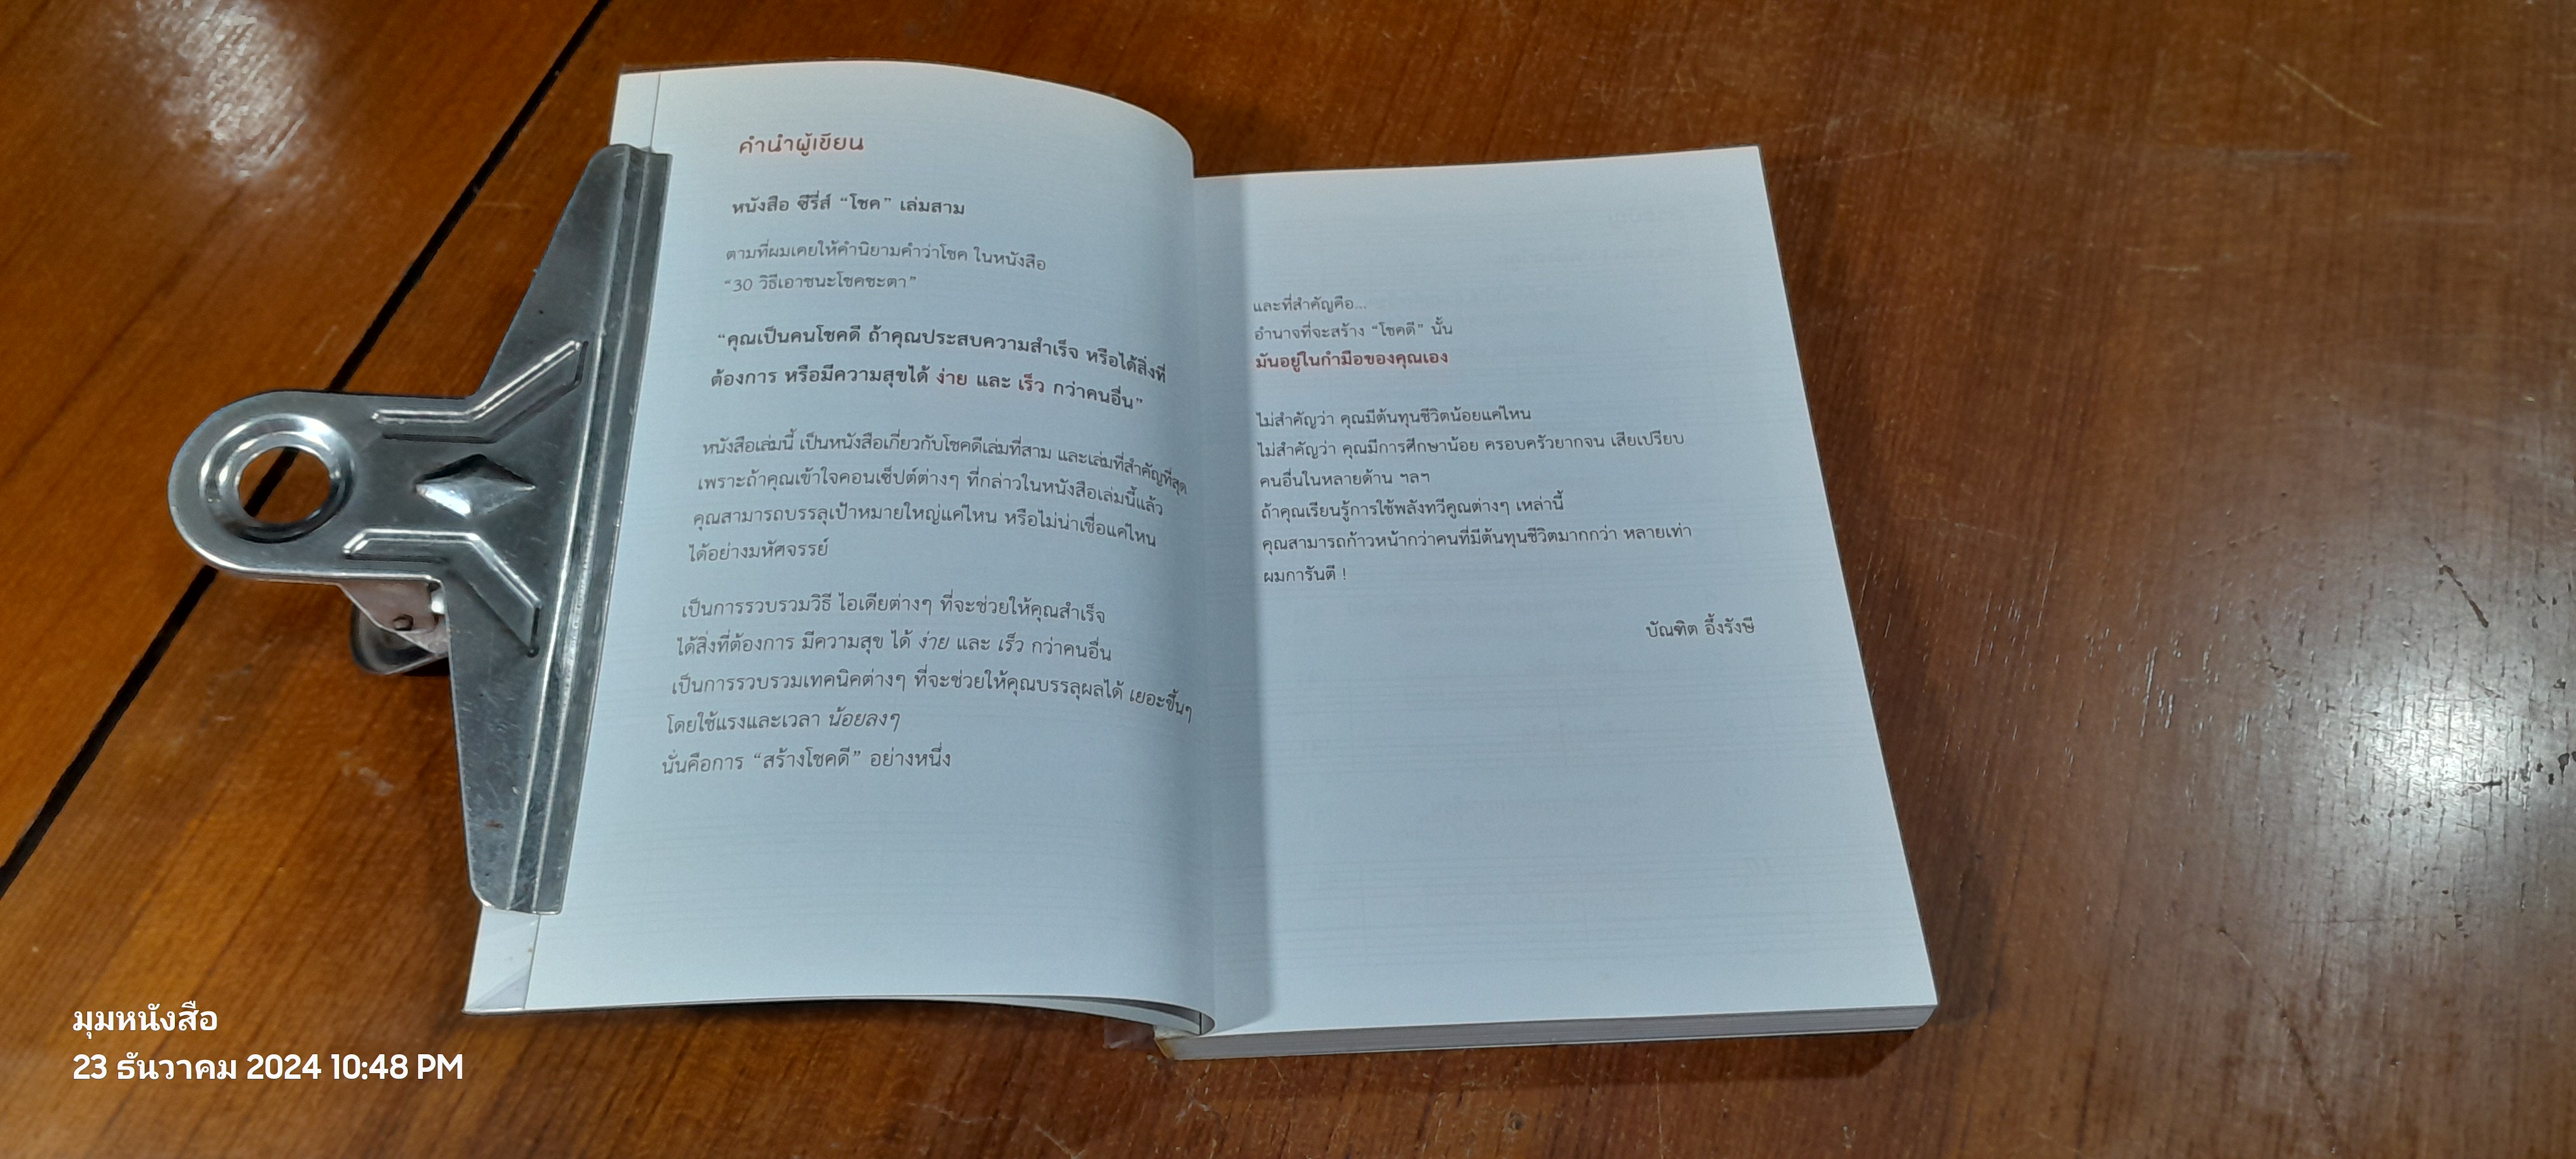 คำนำผู้เขียน
หนังสือ ซีรี่ส์ “โชค” เล่มสาม
ตามที่ผมเคยให้คำนิยามคำว่าโชค ในหนังสือ
“30 วิธีเอาชนะโชคชะตา”
“คุณเป็นคนโชคดี ถ้าคุณประสบความสำเร็จ หรือได้สิ่งที่
ต้องการ หรือมีความสุขได้ ง่าย และ เร็ว กว่าคนอื่น”
หนังสือเล่มนี้ เป็นหนังสือเกี่ยวกับโชคดีเล่มที่สาม และเล่มที่สำคัญที่สุด
เพราะถ้าคุณเข้าใจคอนเซ็ปต์ต่างๆ ที่กล่าวในหนังสือเล่มนี้แล้ว
คุณสามารถบรรลุเป้าหมายใหญ่แค่ไหน หรือไม่น่าเชื่อแค่ไหน
ได้อย่างมหัศจรรย์
เป็นการรวบรวมวิธี ไอเดียต่างๆ ที่จะช่วยให้คุณสำเร็จ
ได้สิ่งที่ต้องการ มีความสุข ได้ ง่าย และ เร็ว กว่าคนอื่น
เป็นการรวบรวมเทคนิคต่างๆ ที่จะช่วยให้คุณบรรลุผลได้ เยอะขึ้นๆ
โดยใช้แรงและเวลา น้อยลงๆ
นั่นคือการ “สร้างโชคดี” อย่างหนึ่ง
และที่สำคัญคือ...
อำนาจที่จะสร้าง “โชคดี” นั้น
มันอยู่ในกำมือของคุณเอง
ไม่สำคัญว่า คุณมีต้นทุนชีวิตน้อยแค่ไหน
ไม่สำคัญว่า คุณมีการศึกษาน้อย ครอบครัวยากจน เสียเปรียบ
คนอื่นในหลายด้าน ฯลฯ
ถ้าคุณเรียนรู้การใช้พลังทวีคูณต่างๆ เหล่านี้
คุณสามารถก้าวหน้ากว่าคนที่มีต้นทุนชีวิตมากกว่า หลายเท่า
ผมการันตี !
บัณฑิต อึ้งรังษี
มุมหนังสือ
23 ธันวาคม 2024 10:48 PM